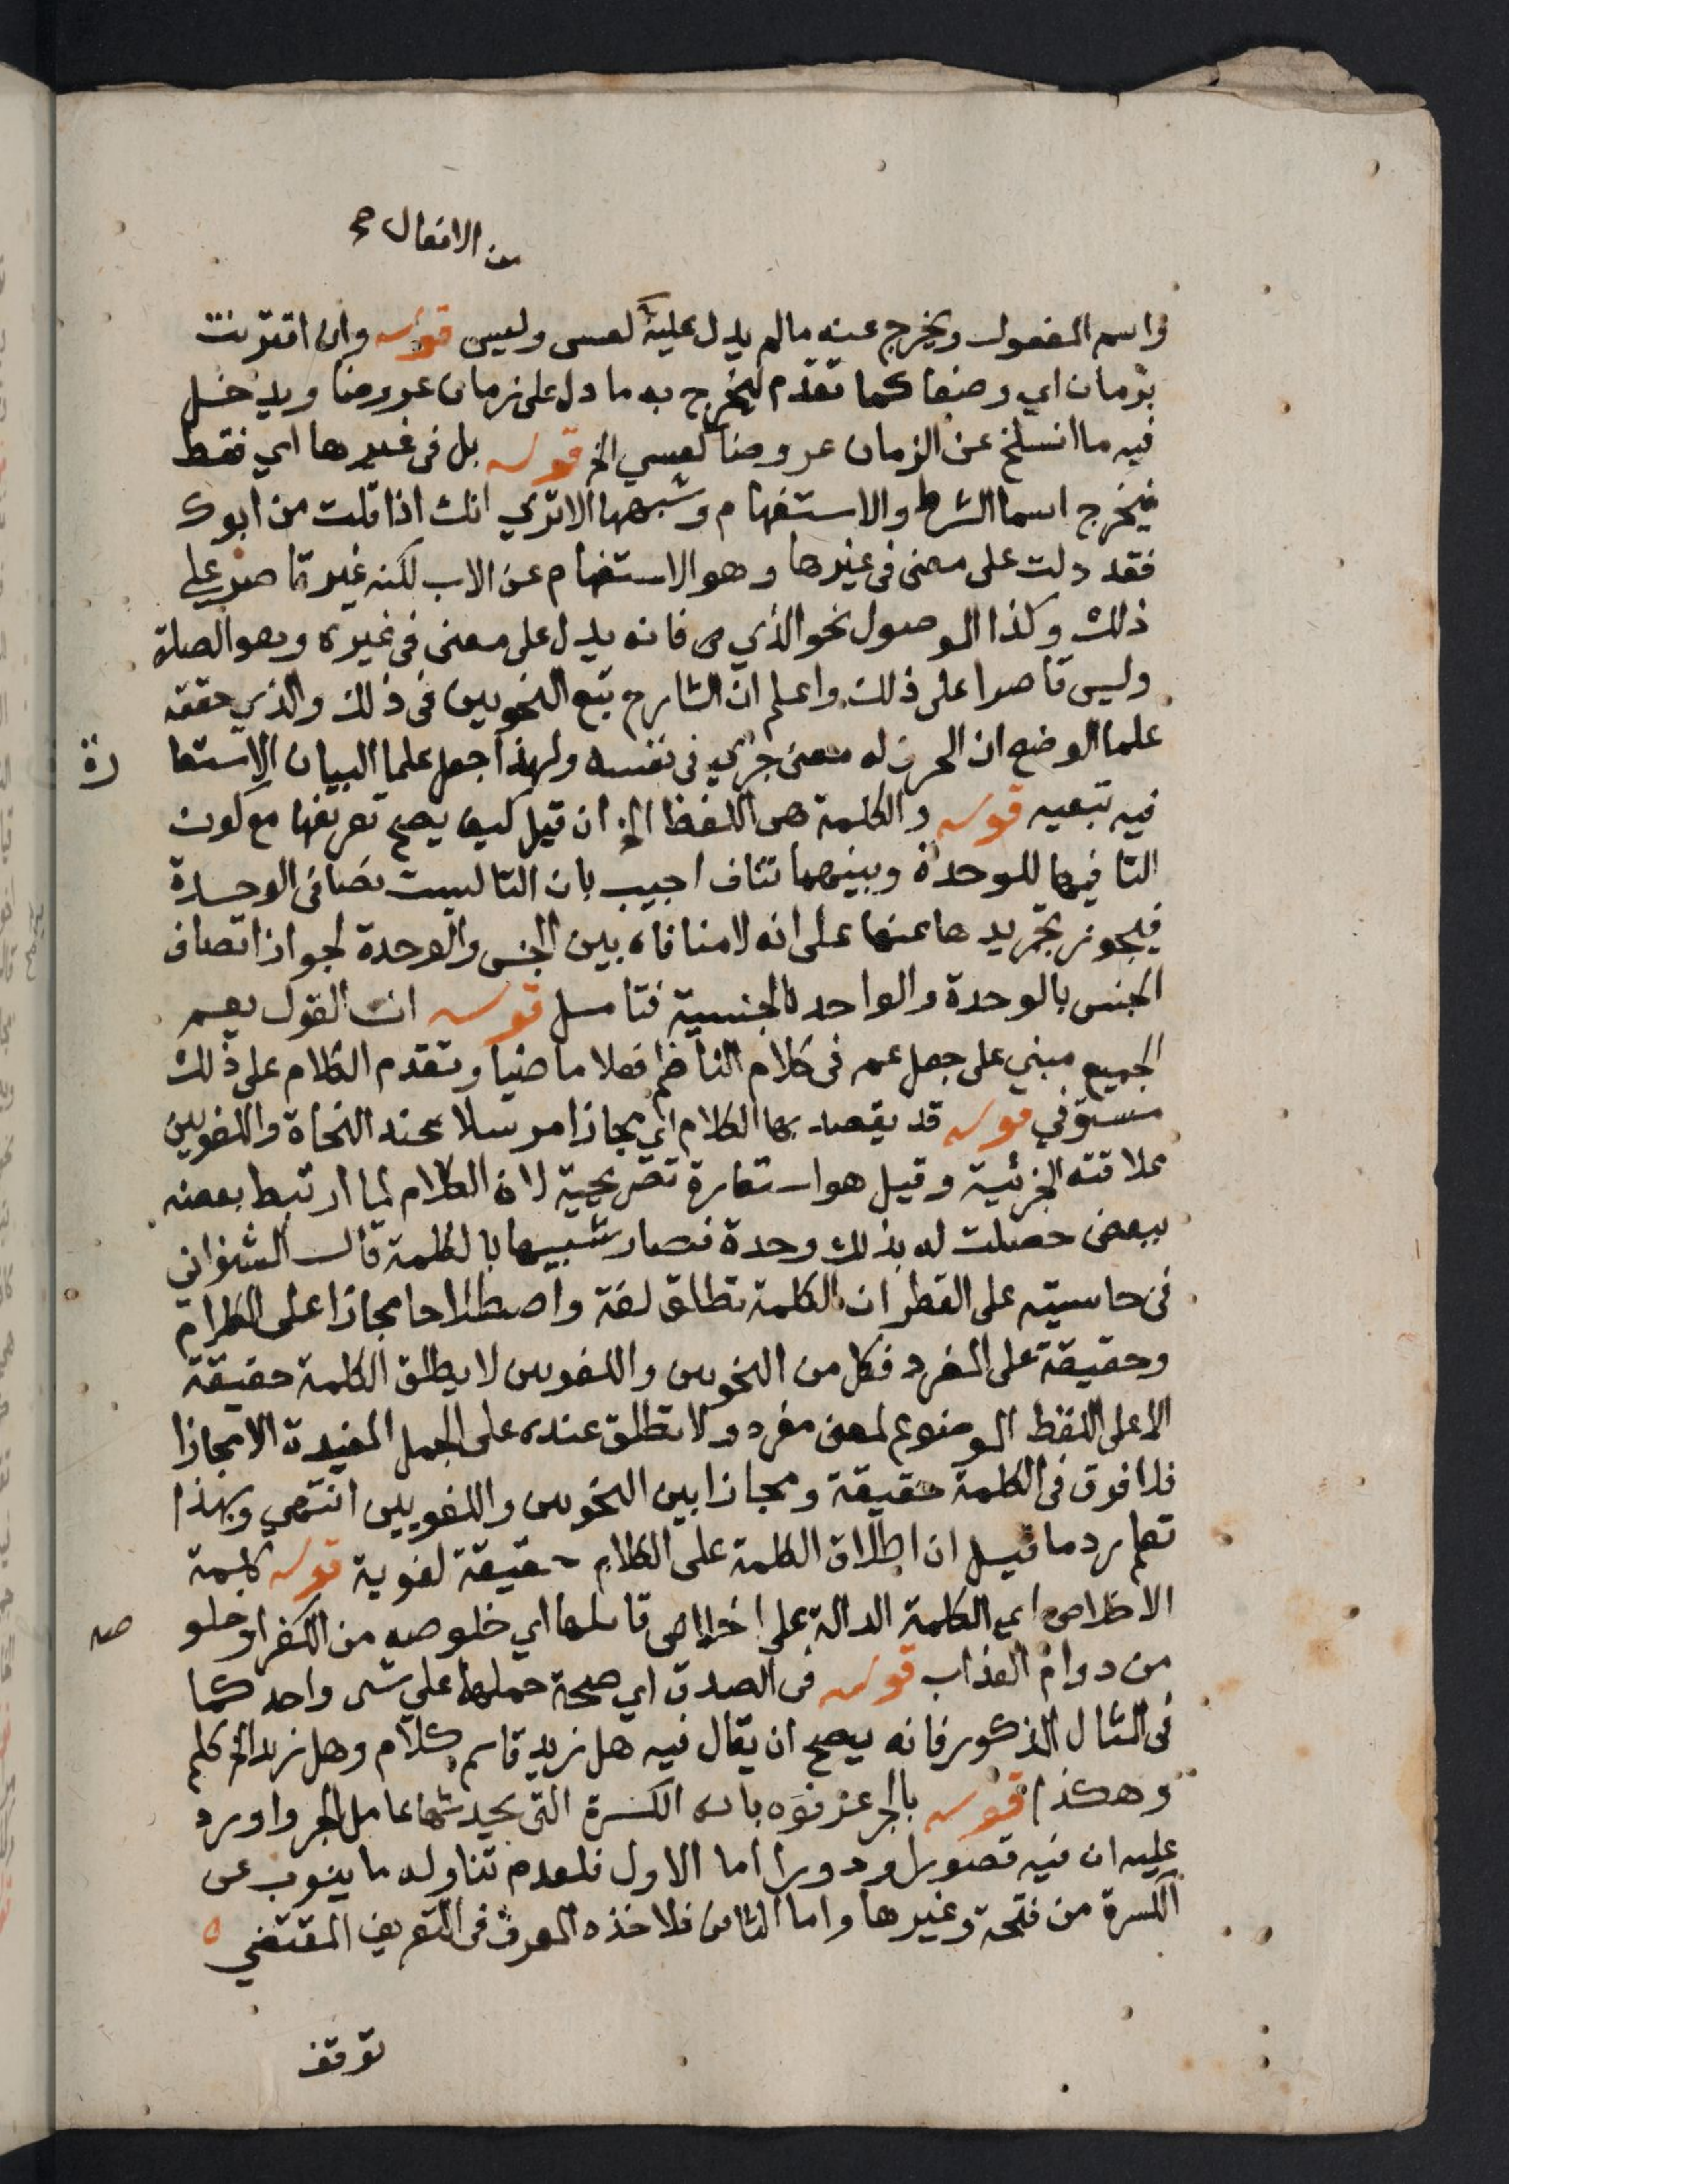 من الافعال صح
واسم المفعول ويخرج عنه مالم يدل عليه كعسى وليس قوله وان اقترنت
بزمان اي وضعا كما تقدم ليخرج به ما دل على زمان عروضا ويدخل
فيه ما انسلخ عن الزمان عروضا كعسي الخ قوله بل في غيرها اي فقط
فيخرج اسما الشرط والاستفهام وشبهها الا تري انك اذا قلت من ابوك
فقد دلت على معنى في غيرها وهو الاستفهام عن الاب لكنه غير قاصر على
ذلك وكذا الموصول نحو الذي فانه يدل على معنى في غيره وهو الصلة
وليس قاصرا على ذلك واعلم ان الشارح تبع النحويين في ذلك والذي حققه
علما الوضع ان الحرف له معنى جزي في نفسه ولهذا جعل علما البيان الاستعا
رة
فيه تبعيه قوله والكلمة هي اللفظ الخ ان قيل كيف يصح تعريفها مع كون
التا فيها للوحدة وبينهما تناف اجيب بان التا ليست نصا في الوحدة
فيجوز تجريدها عنها على انه لا منافاه بين الجنس والوحدة لجواز اتصاف
الجنس بالوحدة والواحد بالجنسية فتامل قوله ان القول يعم
الجميع مبني على جعل عم في كلام الناظم فعلا ماضيا وتقدم الكلام على ذلك
مستوفي قوله قد يقصد بها الكلام اي مجازا مرسلا عند النحاة واللغويين
علاقته الجزئية وقيل هو استعارة تصريحية لان الكلام لما ارتبط بعضه
ببعض حصلت له بذلك وحدة فصار شبيها بالكلمة قال الشنواني
في حاشيته على القطر ان الكلمة تطلق لغة واصطلاحا مجازا على الكلام
وحقيقة على المفرد فكل من النحويين واللغويين لا يطلق الكلمة حقيقة
الا على اللفظ الموضوع لمعنى مفرد ولا تطلق عنده على الجمل المفيدة الا مجازا
فلا فرق في الكلمة حقيقة ومجازا بين النحويين واللغويين انتهي وبهذا
تعلم رد ما قيل ان اطلاق الكلمة على الكلام حقيقة لغوية قوله كلمة
الاخلاص اي الكلمة الدالة على اخلاص قائلها اي خلوصه من الكفر او خلو
صه
من دوام العذاب قوله في الصدق اي صحة حملها على شى واحد كما
في المثال المذكور فانه يصح ان يقال فيه هل زيد قائم كلام وهل زيد الخ كلم
وهكذا قوله بالجر عرفوه بانه الكسرة التي يحدثها عامل الجر واورد
عليه ان فيه قصورا ودورا اما الاول فلعدم تناوله ما ينوب عن
الكسرة من فتحة وغيرها واما الثاني فلاخذه المعرف في التعريف المقتضي
توقف